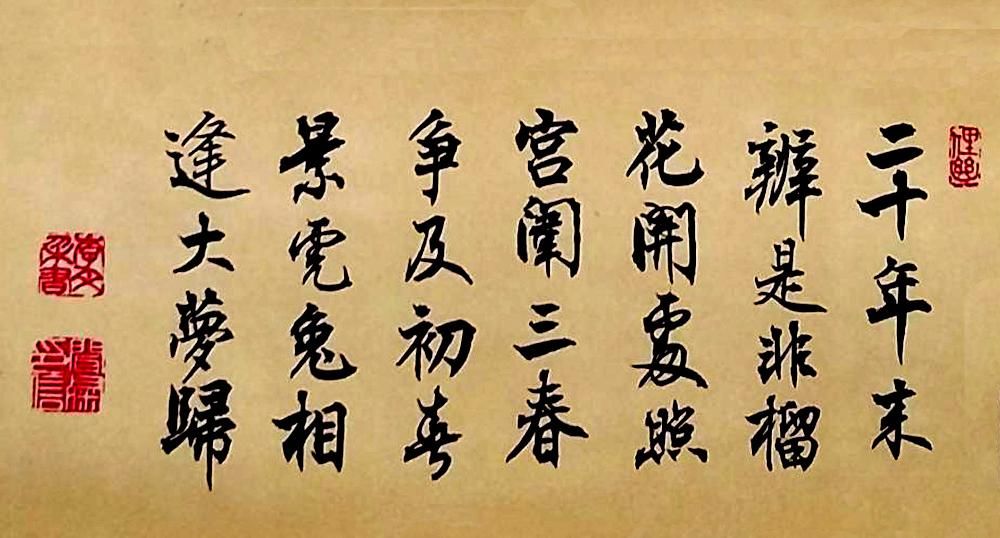 二十年来
辨是非榴
花開處照
宮闈三春
争及初春
景虎兔相
逢大夢歸